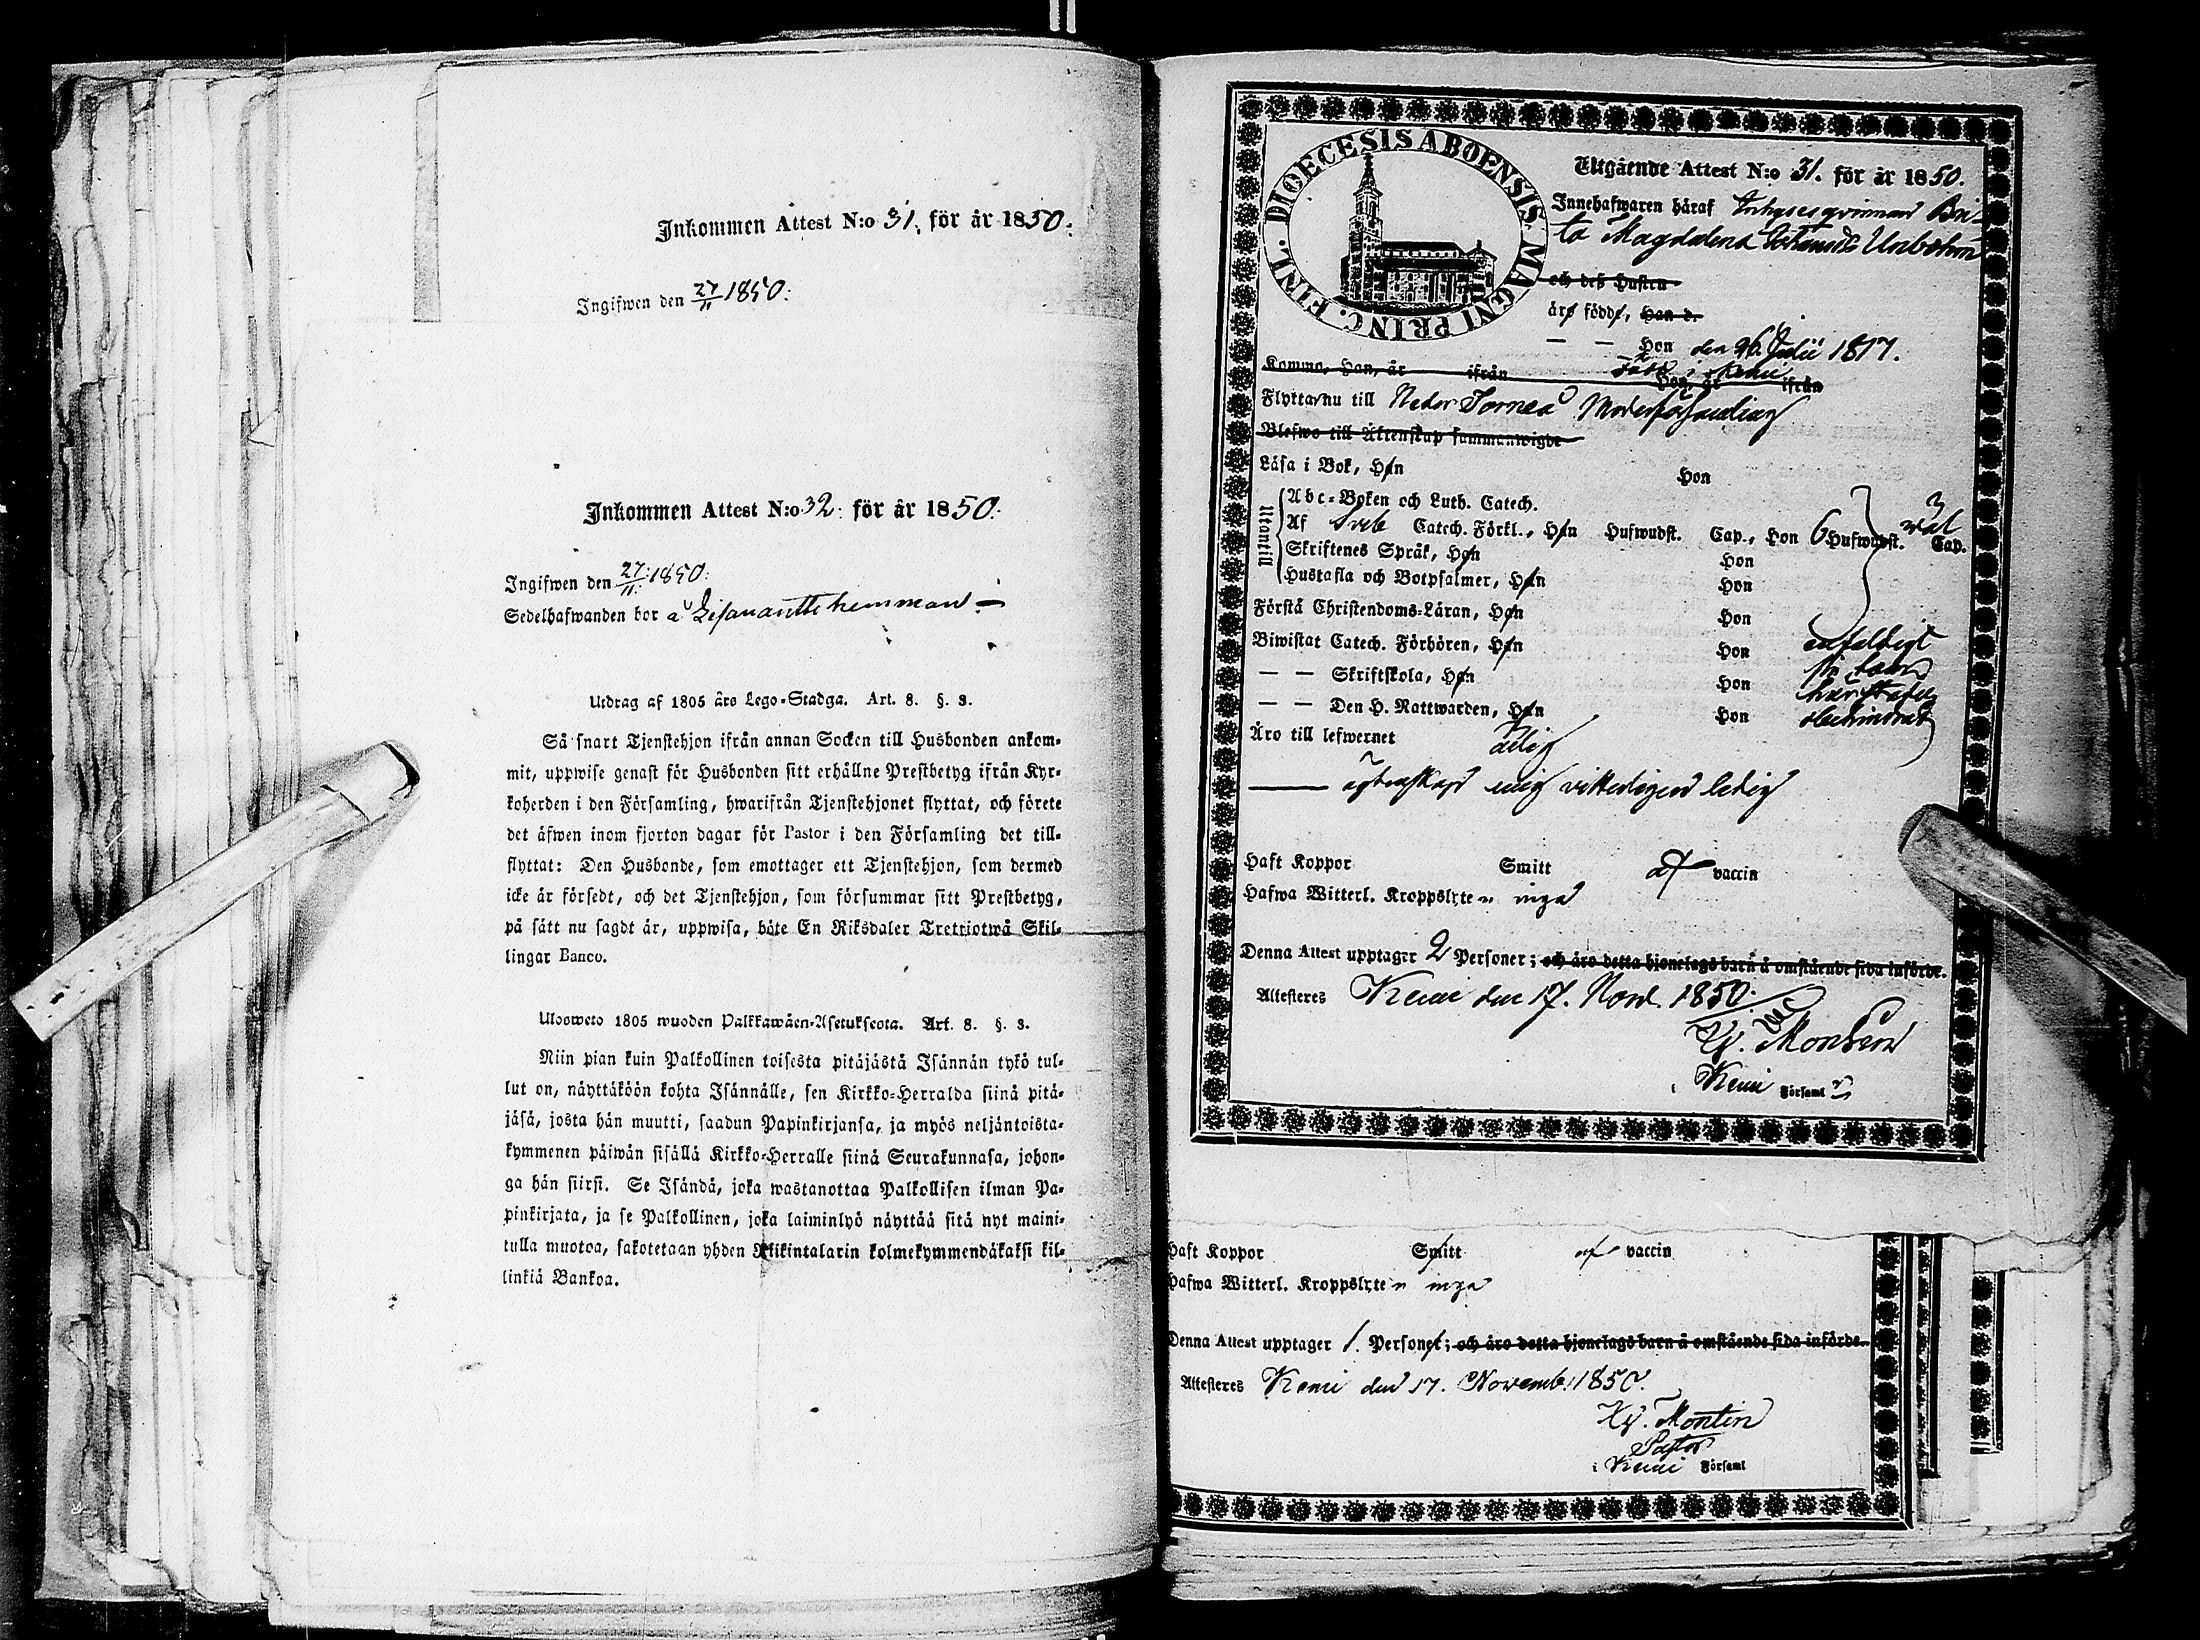 Inkommen Attest N:o 31. för år 1850.
Ingifwen den 27/11 1850.
Inkommen Attest N:o 32. för år 1850.
Ingifwen den 27/11 1850.
Sedelhafwanden bor å hemman. –
Utdrag af 1805 års Lego-Stadga. Art. 8. §. 3.
Så snart Tjenstehjon ifrån annan Socken till Husbonden ankom-
mit, uppwise genast för Husbonden sitt erhållne Prestbetyg ifrån Kyr-
koherden i den Församling, hwarifrån Tjenstehjonet flyttat, och förete
det äfwen inom fjorton dagar för Pastor i den Församling det till-
flyttat: Den Husbonde, som emottager ett Tjenstehjon, som dermed
icke är försedt, och det Tjenstehjon, som försummar sitt Prestbetyg,
på sätt nu sagdt är, uppwisa, böte En Riksdaler Tretriotwå Skil-
lingar Banco.
Uloswcto 1805 wuoden Palkkawäen-Asetuksesta. Art. 8. §. 3.
Niin pian kuin Palkollinen toisesta pitäjästä Isännän tykö tul-
lut on, näyttäköön kohta Isännälle, sen Kirkko-Herralda siinä pitä-
jäsä, josta hän muutti, saadun Papinkirjansa, ja myös neljäntoista-
kymmenen päiwän sisällä Kirkko-Herralle siinä Seurakunnasa, johon-
ga hän siirsi. Se Isändä, joka wastanottaa Palkollisen ilman Pa-
pinkirjata, ja se Palkollinen, joka laiminlyö näyttää sitä nyt maini-
tulla muotoa, sakotetaan yhden Riikintalarin kolmekymmendäkaksi kil-
linkiä Bankoa.
FINL. DIOECESIS ABOENSIS MAGNI PRINC.
Utgående Attest N:o 31. för år 1850.
Innehafwaren häraf Bri-
ta Magdalena Unbohm
och deß Hustru
äro födde, Han d.
— — Hon den 26 Julii 1817.
Komme, Han, år ifrån född i Kemi
Hon, år ifrån
Flyttar nu till Neder Torneå Moderförsamling
Blefwo till Äktenskap sammanwigde
Läsa i Bok, Han Hon
Utantill
Abc-Boken och Luth. Catech. 3
Af Sveb Catech. Förkl., Han Hufwudst. Cap., Hon 6 Hufwudst. wäl Cap.
Skriftenes Språk, Han Hon
Hustafla och Botpsalmer, Han Hon
Förstå Christendoms-Läran, Han Hon enfaldigt
Biwistat Catech. Förhören, Han Hon
— — Skriftskola, Han Hon
— — Den H. Nattwarden, Han Hon obehindrad
Äro till lefwernet ärlig
ägtenskap ledig
Haft Koppor Smitt af vaccin
Hafwa Witterl. Kroppslyten inga
Denna Attest upptager 2 Personer; och äro detta hjonelags barn å omstående sida införde.
Attesteres Kemi den 17. Nov. 1850.
Montin
i Kemi Församl
Haft Koppor Smitt af vaccin
Hafwa Witterl. Kroppslyten inga
Denna Attest upptager 1. Personer; och äro detta hjonelags barn å omstående sida införde.
Attesteres Kemi den 17. Novemb. 1850.
Montin
Pastor
i Kemi Församl